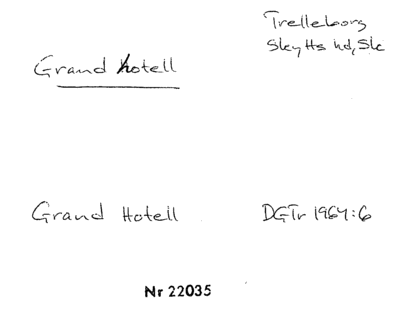 Trelleborg
Skytts hd, Sk
Grand hotell
Grand Hotell
DGTr 1964:6
Nr 22035